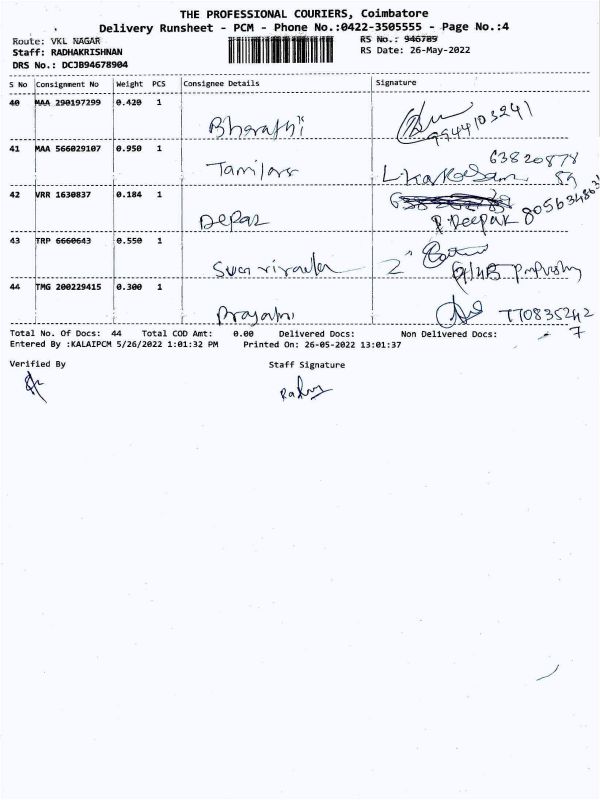 THE PROFESSIONAL COURIERS, Coimbatore
Delivery Runsheet - PCM - Phone No.:0422-3505555 - Page No.:4
Route: VKL NAGAR
RS No.: 946789
Staff: RADHAKRISHNAN
RS Date: 26-May-2022
DRS No.: DCJB94678904
S No Consignment No Weight PCS Consignee Details Signature
40 MAA 290197299 0.420 1
Bharathi
9944103241
41 MAA 566029107 0.950 1
Tamilars
63820878
59
42 VRR 1630837 0.184 1
Depaz
P. Deepak
43 TRP 6660643 0.550 1
2"
44 TMG 200229415 0.300 1
770835242
7
Total No. Of Docs: 44 Total COD Amt: 0.00 Delivered Docs: Non Delivered Docs:
Entered By :KALAIPCM 5/26/2022 1:01:32 PM Printed On: 26-05-2022 13:01:37
Verified By Staff Signature